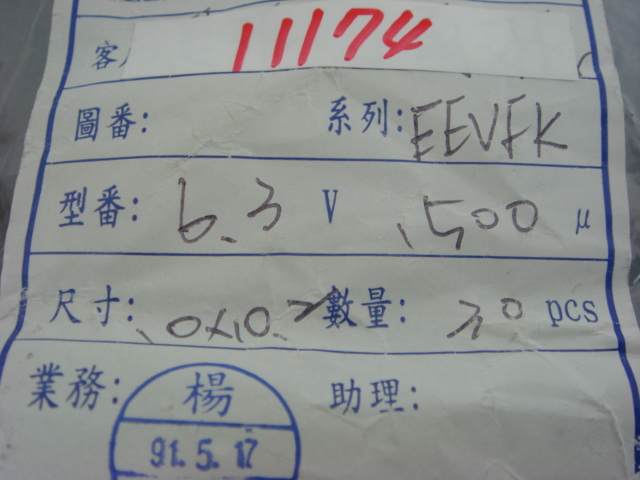 11174
客
圖番: 系列: EEVFK
型番: 6.3 V 1500 μ
尺寸: 10×10.2 數量: 20 pcs
業務: 楊 助理:
91.5.17